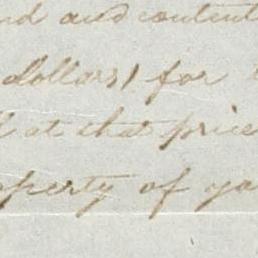 nd and content
dollars) for
at that price
operty of yo